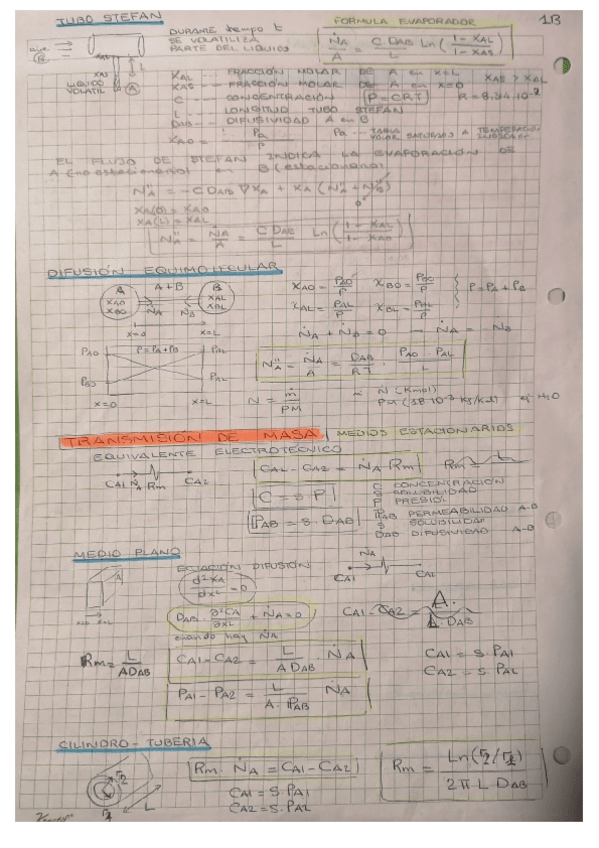 TUBO STEFAN
DURANTE tiempo t
SE VOLATILIZA
PARTE DEL LÍQUIDO
FORMULA EVAPORADOR
1B
ṄA/A = C DAB/L Ln (1-XAL/1-XAS)
aire B
LÍQUIDO
VOLATIL
XAL ... FRACCIÓN MOLAR DE A en x=L
XAS ... FRACCIÓN MOLAR DE A en x=0
XAS > XAL
C ... CONCENTRACIÓN
P = CRT
R = 8,314·10⁻²
L ... LONGITUD TUBO STEFAN
DAB ... DIFUSIVIDAD A en B
XAO = PA/P
PA ... TABLA
VAPOR SATURADO A TEMPERATURA
EL FLUJO DE STEFAN INDICA LA EVAPORACIÓN DE
A (no estacionario) en B (estacionario)
N"A = -C DAB ∇XA + XA (N"A + N"B)
0
XA(0) = XAO
XA(L) = XAL
N"A = ṄA/A = C DAB/L Ln (1-XAL/1-XAO)
DIFUSIÓN EQUIMOLECULAR
A A+B B
XAO XBO XAL XBL
ṄA ṄB
x=0 x=L
XAO = PAO/P XBO = PBO/P
XAL = PAL/P XBL = PBL/P
P = PA + PB
ṄA + ṄB = 0 → ṄA = -ṄB
PAO P=PA+PB PBL
PBO PAL
x=0 x=L
N"A = ṄA/A = DAB/RT · PAO - PAL/L
N = ṁ/PM
Ṅ (Kmol)
H₂O
TRANSMISIÓN DE MASA, MEDIOS ESTACIONARIOS
EQUIVALENTE ELECTROTÉCNICO
CA1 ṄA Rm CA2
CA1 - CA2 = ṄA Rm
Rm =
C = S·P
C CONCENTRACIÓN
S SOLUBILIDAD
P PRESIÓN
PAB = S·DAB
PAB PERMEABILIDAD A-B
S SOLUBILIDAD
DAB DIFUSIVIDAD A-B
MEDIO PLANO
ECUACIÓN DIFUSIÓN
d²XA/dx² = 0
ṄA
CA1 CA2
DAB · ∂²CA/∂x² + ṄA = 0
cuando hay ṄA
Rm = L/A DAB
CA1 - CA2 = L/A DAB · ṄA
CA1 = S·PA1
CA2 = S·PA2
PA1 - PA2 = L/A·PAB ṄA
CILINDRO - TUBERIA
r2
r1
L
Rm · ṄA = CA1 - CA2
Rm = Ln(r2/r1)/2π L DAB
CA1 = S·PA1
CA2 = S·PA2